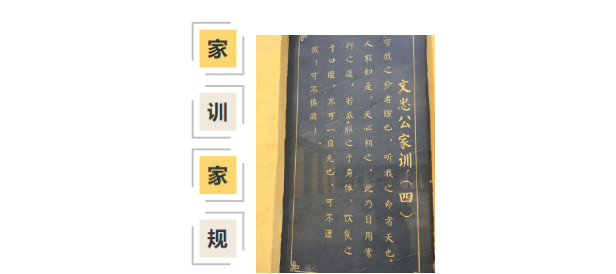 家
训
家
规
文忠公家训（四）
守我之分者理也，听我之命者天也。
人能如是，天必相之。此乃日用常
行之道，若衣服之于身体、饮食之
于口腹，不可一日无也，可不谨
哉！可不慎哉！